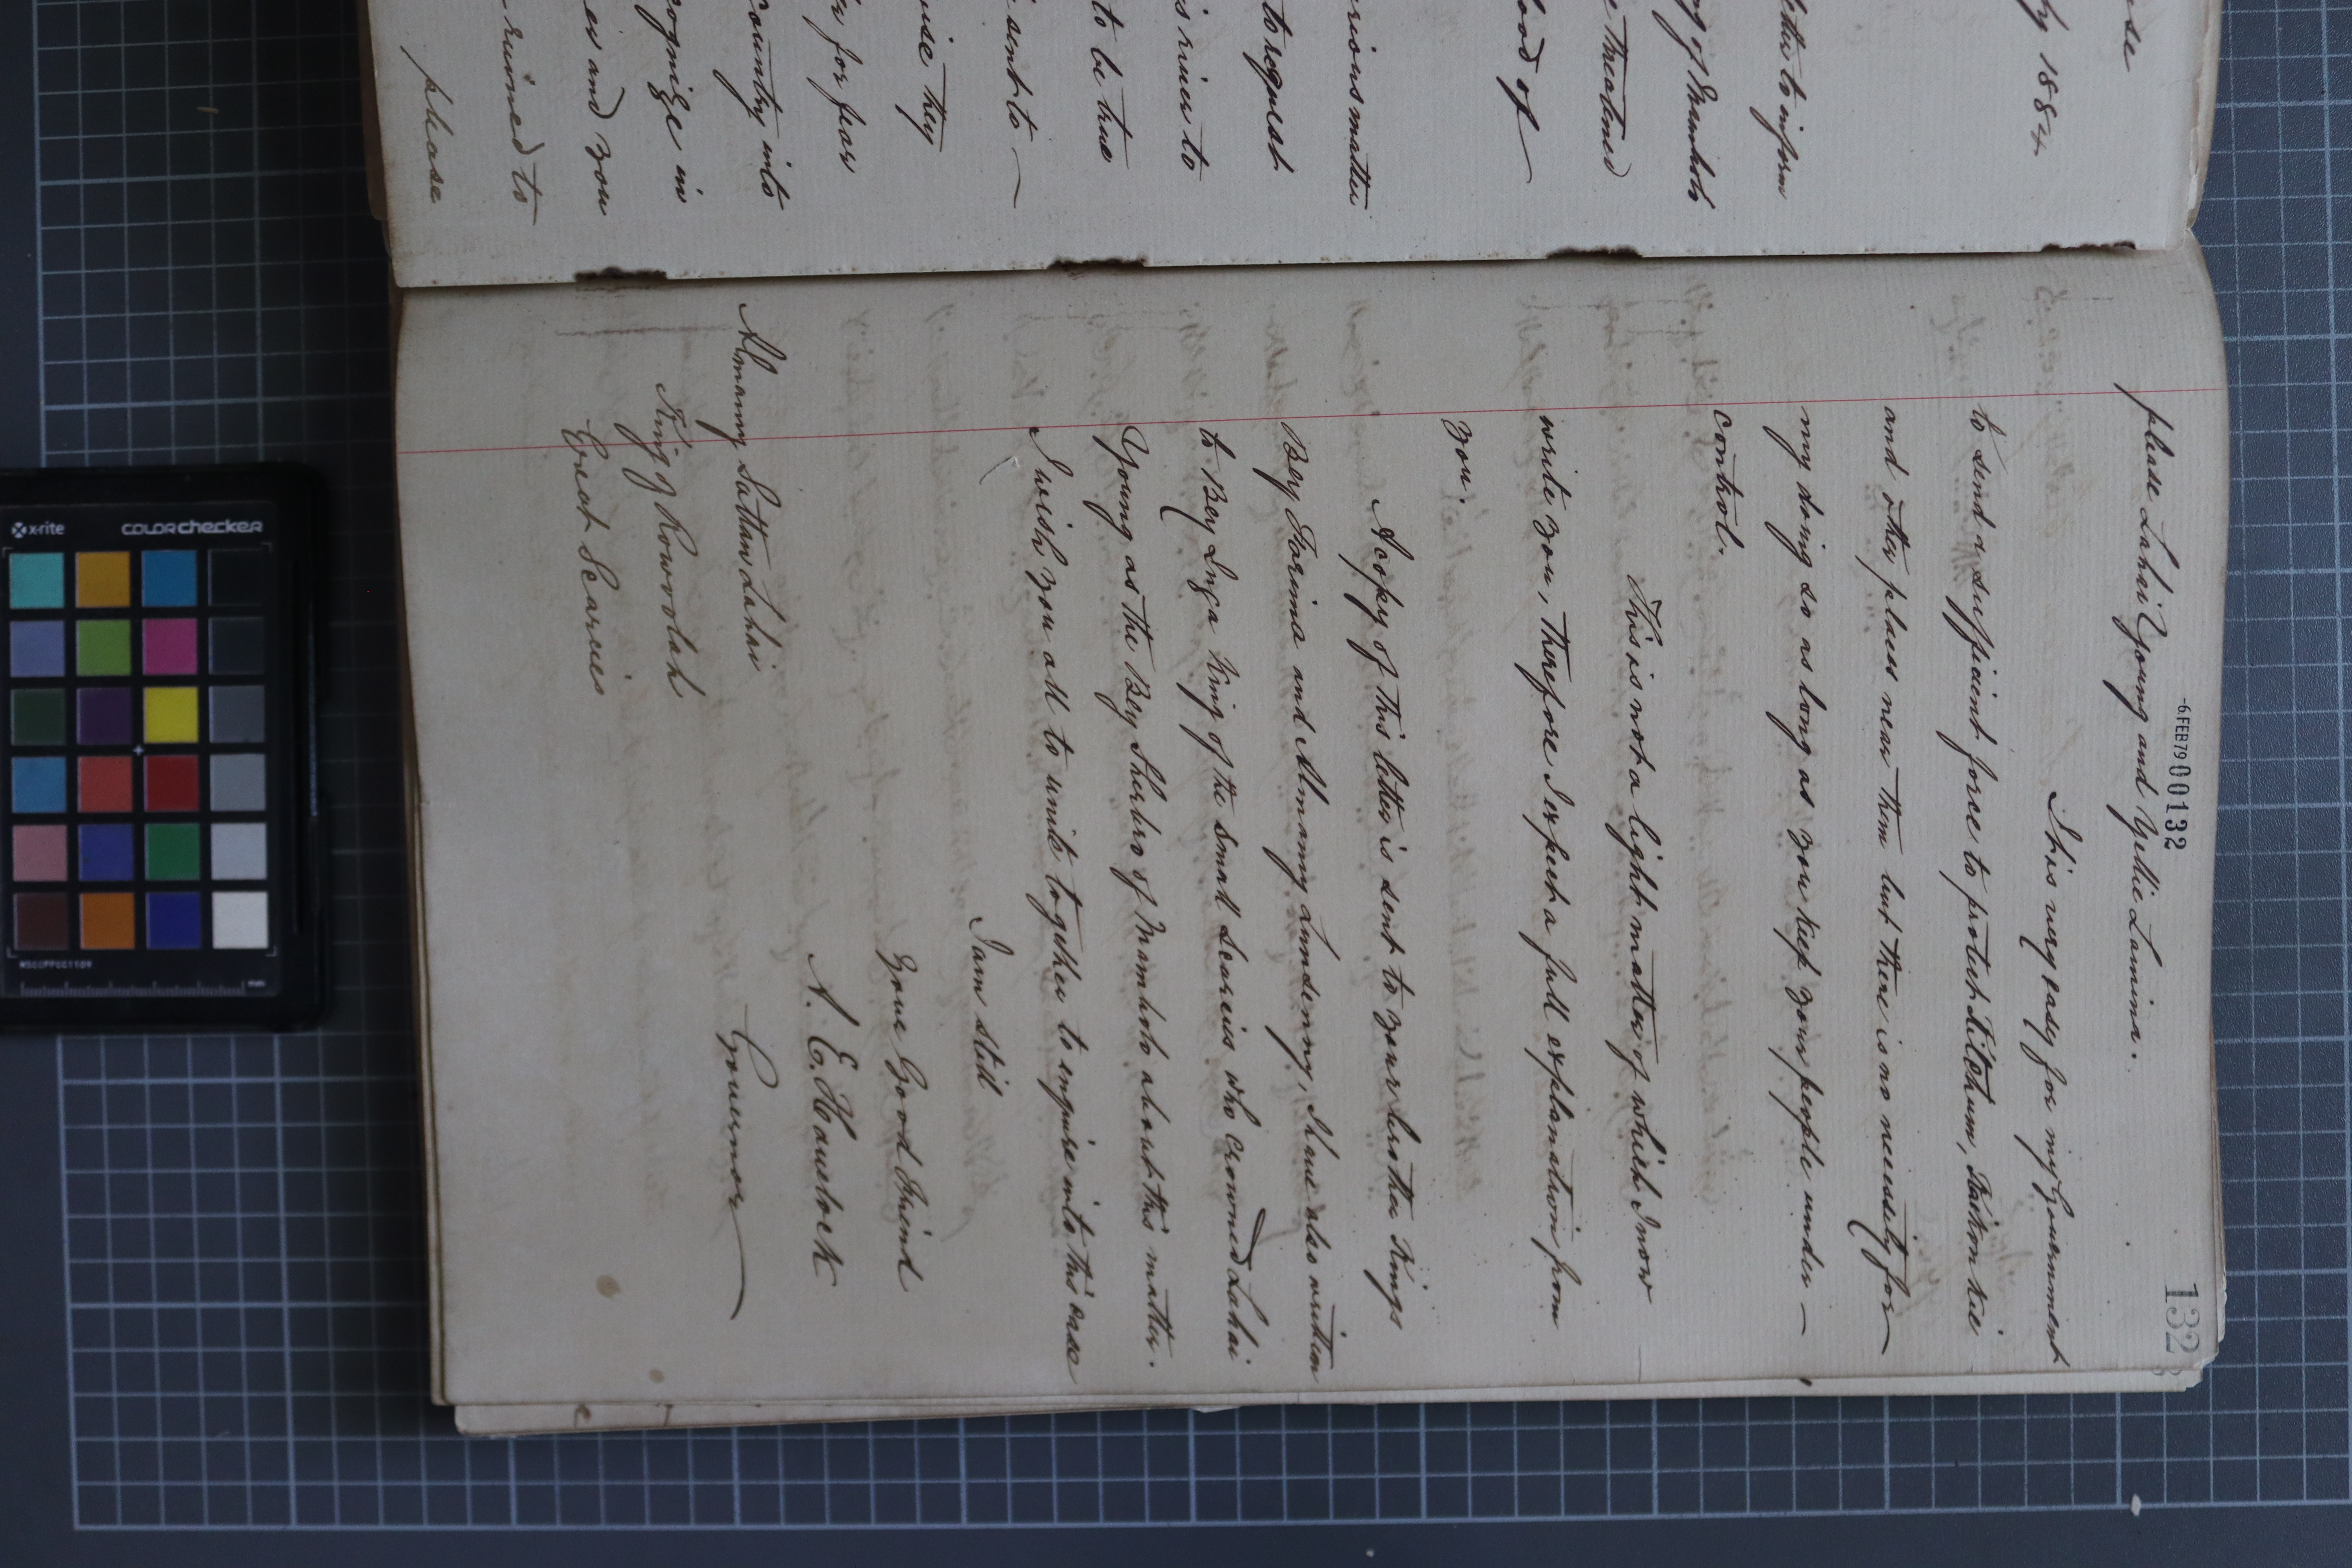 se
ly 1884
letter to inform
ng of Mambolo
e threatened
ood of
erious matter
to request
s river to
to be true
sent to
wise they
for fear
country into
cognize in
es and you
ruined to
please
-6.FEB79 00132
132
please Lahai Young and Yellie Lamina.
It is very easy for my Government
to send a sufficient force to protect Kitchum, Raiton Kie
and other places near them but there is no necessity for
my doing so as long as you keep your people under
control.
This is not a light matter of which I now
write you, therefore I expect a full explanation from
you.
A copy of this letter is sent to your brother Kings
Bey Farima and Almamy, I have also written
to Bey Inga King of the Small Scarcies who crowned Lahai
Young as the Bey Sherbro of Mambolo about this matter.
I wish you all to unite together to enquire into this case
I am still
Your Good Friend
A. E. Havelock
Governor
Almamy Sattan Lahai
King of Rowoolah
Great Scarcies
x-rite
colorchecker
MSCCPPCC1109
mm